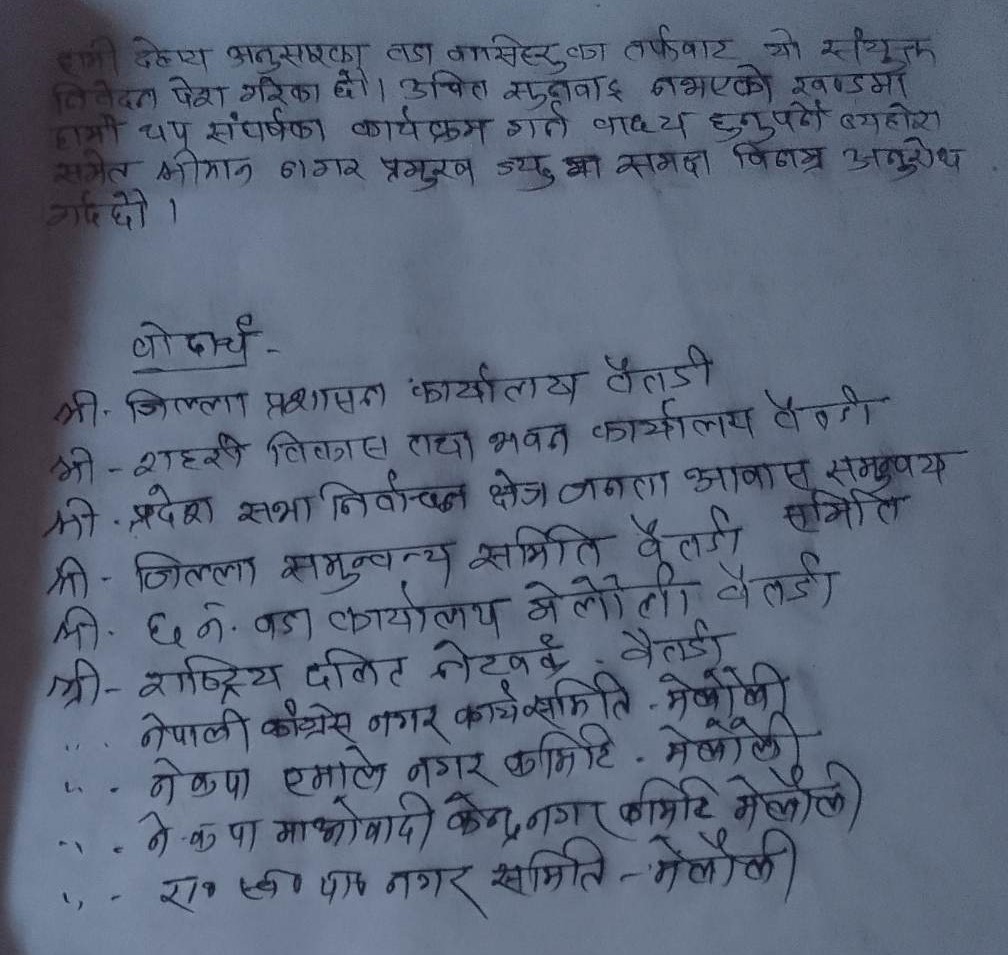 हामी देहाय अनुसारका वडा वासीहरुका तर्फबाट यो संयुक्त
निवेदन पेश गरेका छौं। उचित सुनुवाइ नभएको खण्डमा
हामी थप संघर्षका कार्यक्रम गर्न वाध्य हुनुपर्ने व्यहोरा
समेत श्रीमान नगर प्रमुख ज्यु मा समक्ष विनम्र अनुरोध
गर्दछौं ।
वोदार्थ -
श्री. जिल्ला प्रशासन कार्यालय बैतडी
श्री - शहरी विकास तथा भवन कार्यालय बैतडी
श्री . प्रदेश सभा निर्वाचन क्षेत्र जनता आवास समुन्वय
समिति
श्री - जिल्ला समुन्वन्य समिति बैतडी
श्री. ६ नं. वडा कार्यालय मेलौली बैतडी
श्री - राष्ट्रिय दलित नेटवर्क - बैतडी
,, . नेपाली काँग्रेस नगर कार्यसमिति - मेलौली
,, . ने क पा एमाले नगर कमिटि - मेलौली
,, . ने. क पा माओवादी केन्द्र नगर कमिटि मेलौली
,, - रा० स्व० पा० नगर समिति - मेलौली